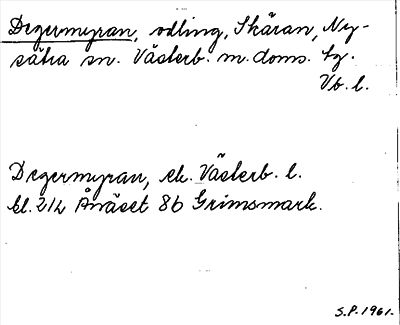 Degermyran, odling, Skäran, Ny-
sätra sn. Västerb. m. doms. tg.
Vb. l.
Degermyran, ek. Västerb. l.
bl. 21h Ånäset 8b Grimsmark.
S.P. 1961.